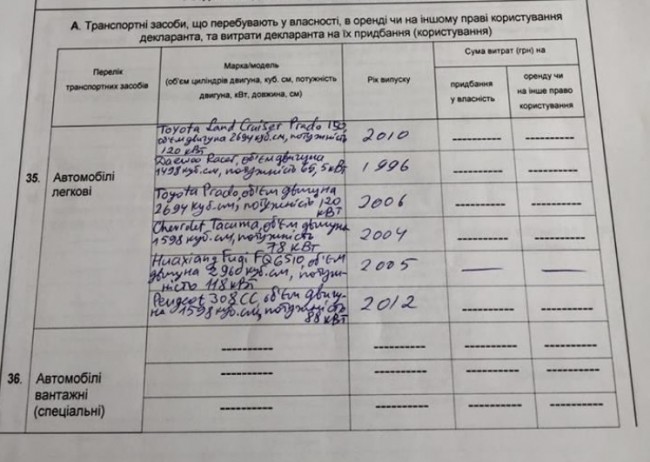 А. Транспортні засоби, що перебувають у власності, в оренді чи на іншому праві користування
декларанта, та витрати декларанта на їх придбання (користування)
Перелік
транспортних засобів
Марка/модель
(об'єм циліндрів двигуна, куб. см, потужність
двигуна, кВт, довжина, см)
Рік випуску
Сума витрат (грн) на
придбання
у власність
оренду чи
на інше право
користування
35. Автомобілі
легкові
Toyota Land Cruiser Prado 150,
об'єм двигуна 2694 куб.см, потужність
120 кВт
2010
---------- ----------
Daewoo Racer, об'єм двигуна
1498 куб.см, потужність 55,5 кВт
1996
---------- ----------
Toyota Prado, об'єм двигуна
2694 куб.см, потужність 120
кВт
2006
---------- ----------
Chevrolet Tacuma, об'єм двигуна
1598 куб.см, потужність
78 кВт
2004
---------- ----------
Huaxiang Fuqi FQ6510, об'єм
двигуна 2960 куб.см, потуж-
ність 118 кВт
2005
— —
Peugeot 308 CC, об'єм двигу-
на 1598 куб.см, потужність
88 кВт
2012
---------- ----------
36. Автомобілі
вантажні
(спеціальні)
---------- ---------- ---------- ----------
---------- ---------- ---------- ----------
---------- ---------- ---------- ----------